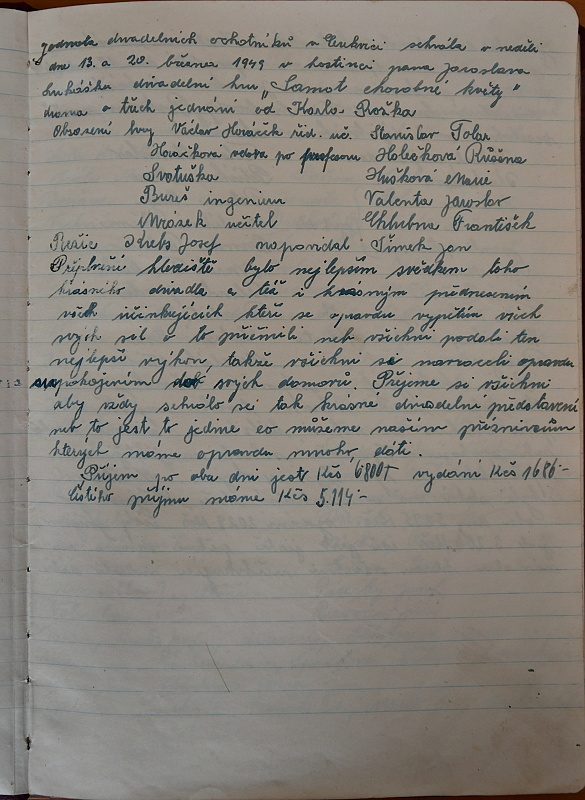 Jednota divadelních ochotníků v Cukvici sehrála v neděli
dne 13. a 20. března 1949 v hostinci pana Jaroslava
Lukášku divadelní hru „Samot chorobné květy"
drama o třech jednání od Karla Rožka
Obsazení hry Václav Horáček říd. uč. Stanislav Tolar
Horáčková vdova po profesoru Holečková Růžena
Svatuška Hušková Marie
Bureš ingenieur Valenta Jaroslav
Mrázek učitel Chlubna František
Režie Josef napovídal Šimek Jan
Přeplněné hlediště bylo nejlepším svědkem toho
krásného divadla a též i krásným přednesením
všech účinkujících kteří se opravdu vypětím všech
svých sil o to přičinili neb všichni podali ten
nejlepší výkon, takže všichni se navraceli opravdu
uspokojeným do svých domovů. Přejeme si všichni
aby vždy sehrálo se tak krásné divadelní představení
neb to jest to jediné co můžeme našim příznivcům
kterých máme opravdu mnoho, dáti.
Příjem po oba dni jest Kčs 6800 vydání Kčs 1686·-
čistého příjmu máme Kčs 5.114·-